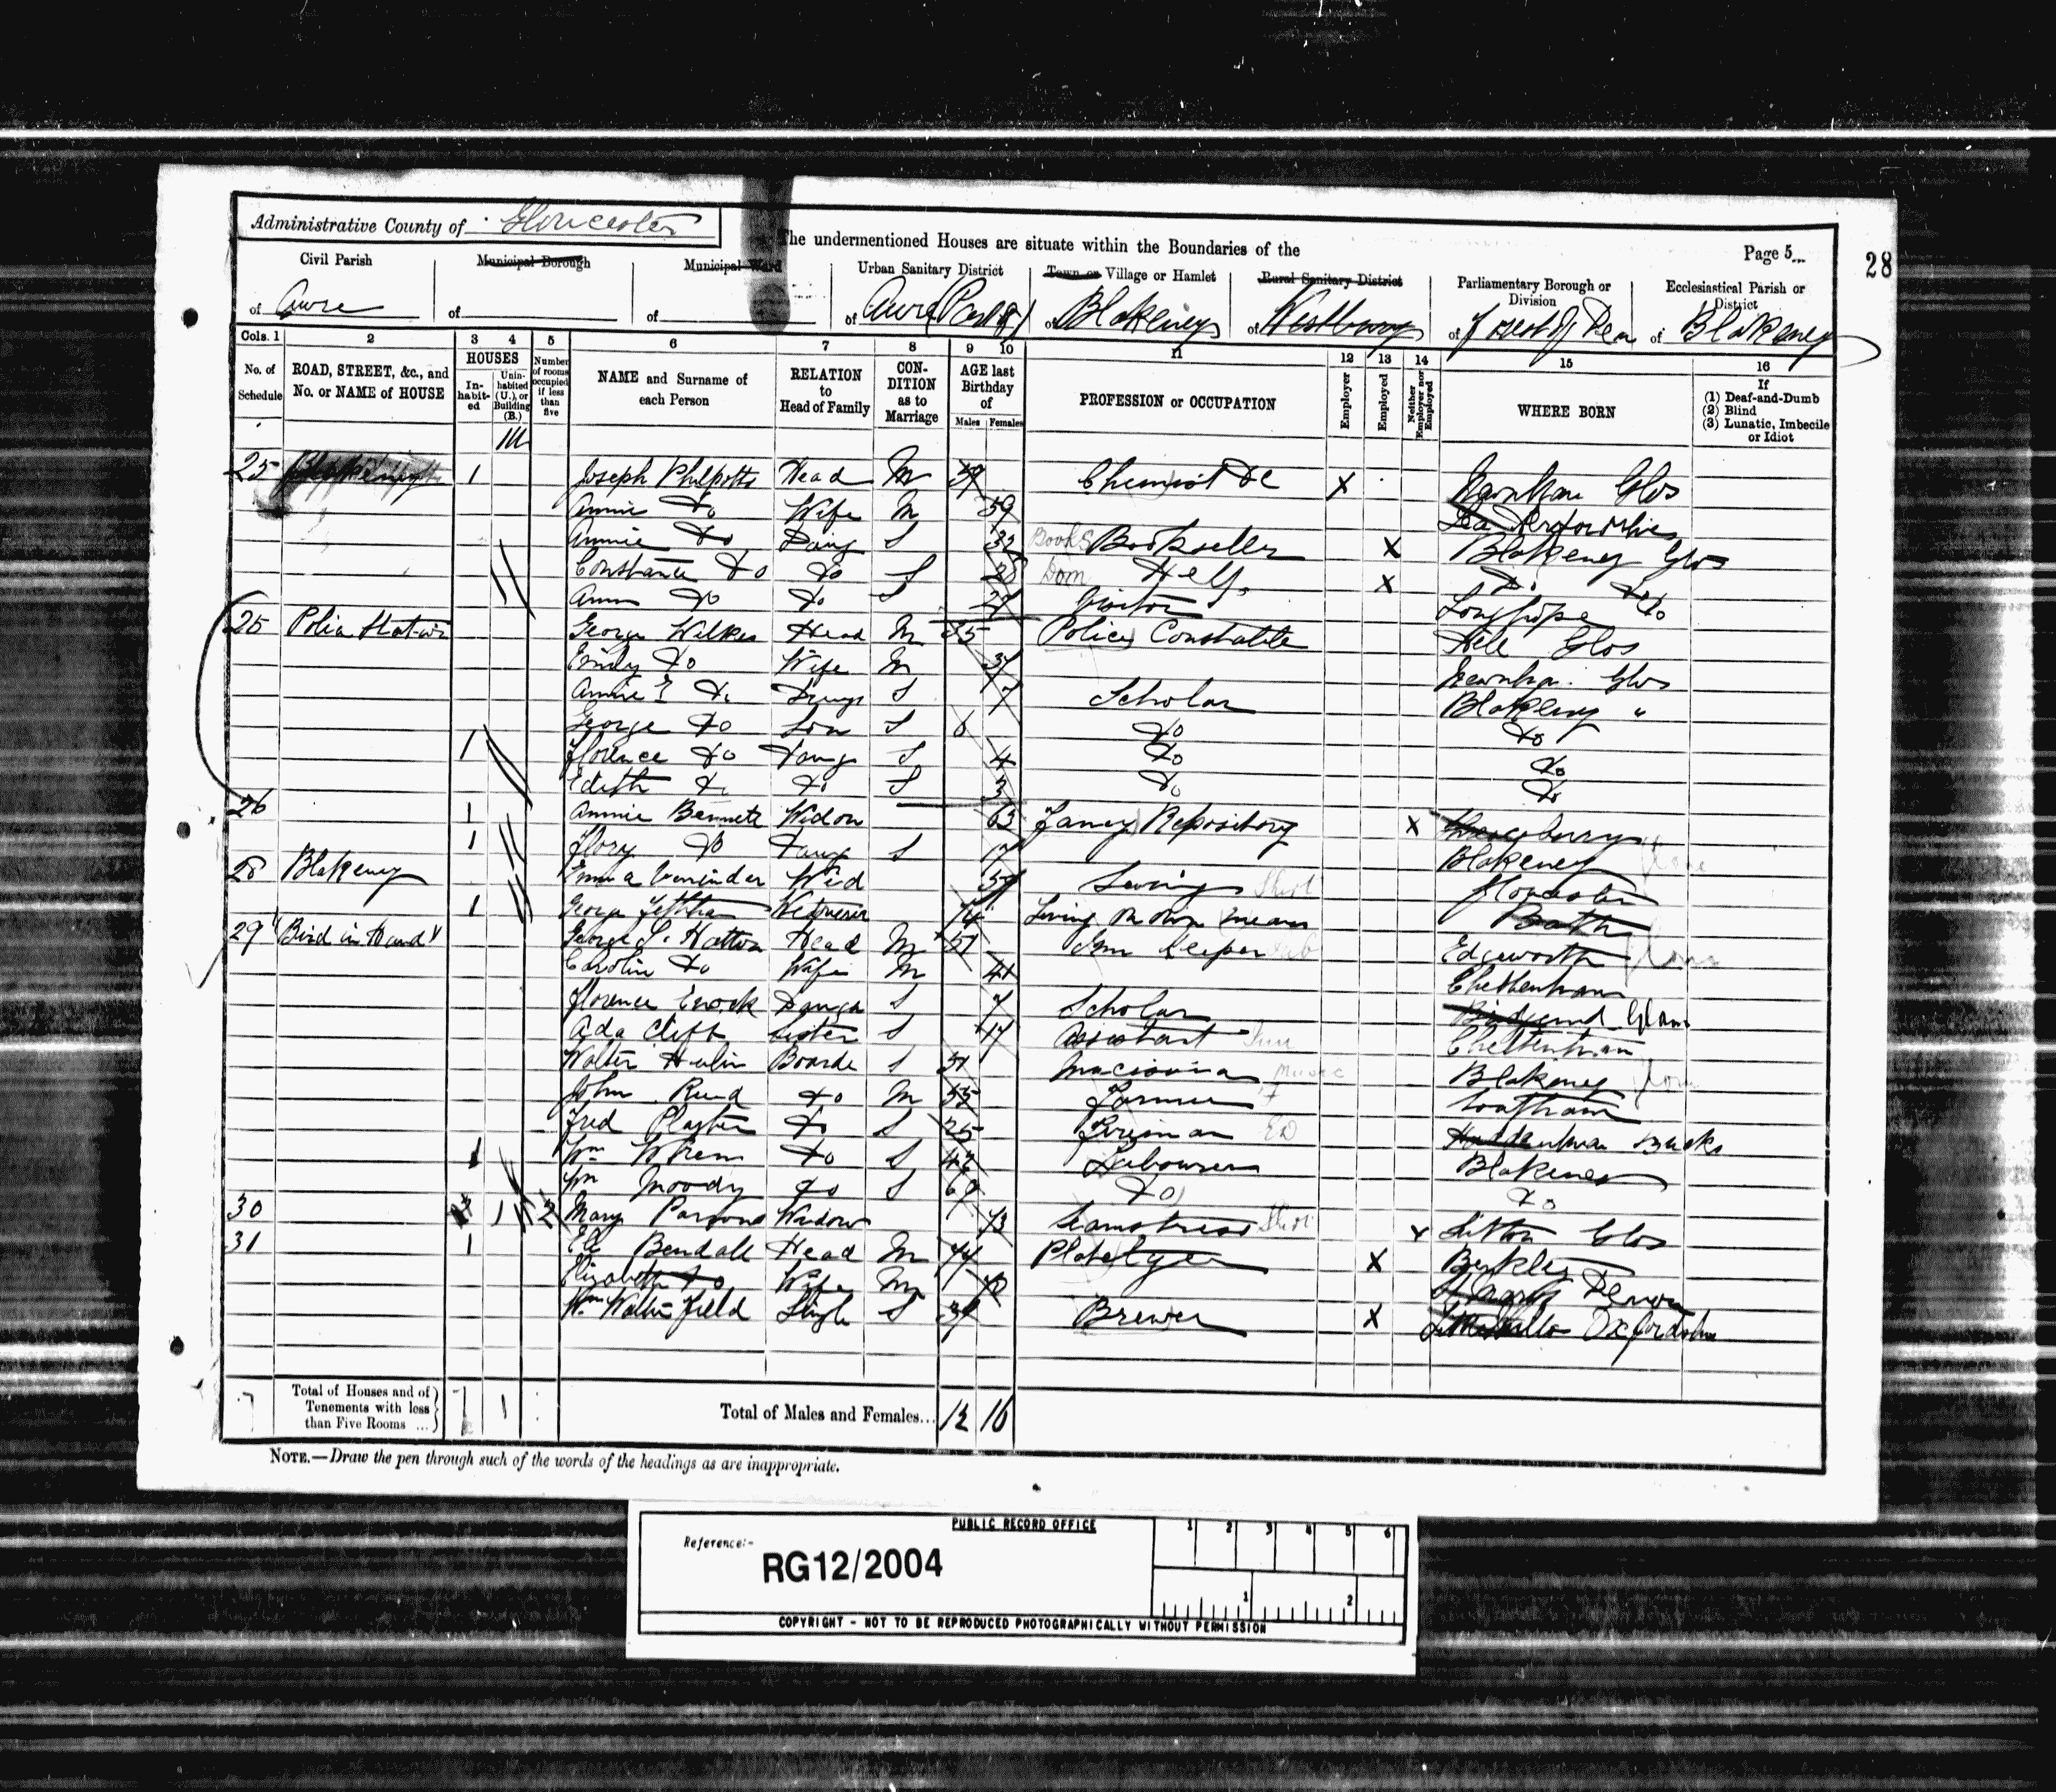 Administrative County of Gloucester
The undermentioned Houses are situate within the Boundaries of the
Page 5
28
Civil Parish Municipal Borough Municipal Ward Urban Sanitary District Town or Village or Hamlet Rural Sanitary District Parliamentary Borough or Division Ecclesiastical Parish or District
of Awre of of of Awre (Part of) of Blakeney of Westbury of Forest of Dean of Blakeney
Cols. 1 2 3 4 5 6 7 8 9 10 11 12 13 14 15 16
No. of Schedule ROAD, STREET, &c., and No. or NAME of HOUSE HOUSES In-habit-ed Unin-habited (U.), or Building (B.) Number of rooms occupied if less than five NAME and Surname of each Person RELATION to Head of Family CON-DITION as to Marriage AGE last Birthday of Males Females PROFESSION or OCCUPATION Employer Employed Neither Employer nor Employed WHERE BORN If (1) Deaf-and-Dumb (2) Blind (3) Lunatic, Imbecile or Idiot
25 Blakeney 1 Joseph Philpotts Head M 59 Chemist &c X Glos
Annie Do Wife M 59 Lea Herfordshire
Annie Do Daug S 32 Bookseller X Blakeney Glos
Constance Do Do S 28 Dom Help X Do Do
Ann Do Do S 27 Visitor Longhope Do
25 Police Station George Wilkes Head M 35 Police Constable Glos
Emily Do Wife M 37 Glos
Annie E Do Daug S 7 Scholar Blakeney "
George Do Son S 6 Do Do
1 Florence Do Daug S 4 Do Do
Edith Do Do S 3 Do Do
26 1 Annie Bennett Widow 63 Fancy Repository X
1 Flory Do Daug S 17 Blakeney
28 Blakeney Emma Wid Sewing Gloucester
1 George Widower 74 Living on own means Bath
29 "Bird in Hand" George S. Hatton Head M 51 Inn Keeper Edgeworth
Caroline Do Wife M 41 Cheltenham
Florence Enock Daugh S 7 Scholar Glam
Ada Clift Sister S 17 Assistant Inn Cheltenham
Walter Hulin Boarder S 31 Musician Blakeney
John Do M 55 Farmer Southam
Fred Do S 25 Fireman Bucks
1 Wm Do S 42 Labourer Blakeney
Wm Moody Do S 69 Do Do
30 1 2 Mary Parsons Widow 73 Seamstress X Litton Glos
31 1 Eli Bendall Head M 44 Platelayer X Berkley
Elizabeth Do Wife M Devon
Wm Walter Field Single S 39 Brewer X Oxfordshire
7 Total of Houses and of Tenements with less than Five Rooms ... 7 1 Total of Males and Females... 12 16
NOTE.—Draw the pen through such of the words of the headings as are inappropriate.
PUBLIC RECORD OFFICE
1 2 3 4 5 6
Reference:-
RG12/2004
1 2
COPYRIGHT - NOT TO BE REPRODUCED PHOTOGRAPHICALLY WITHOUT PERMISSION